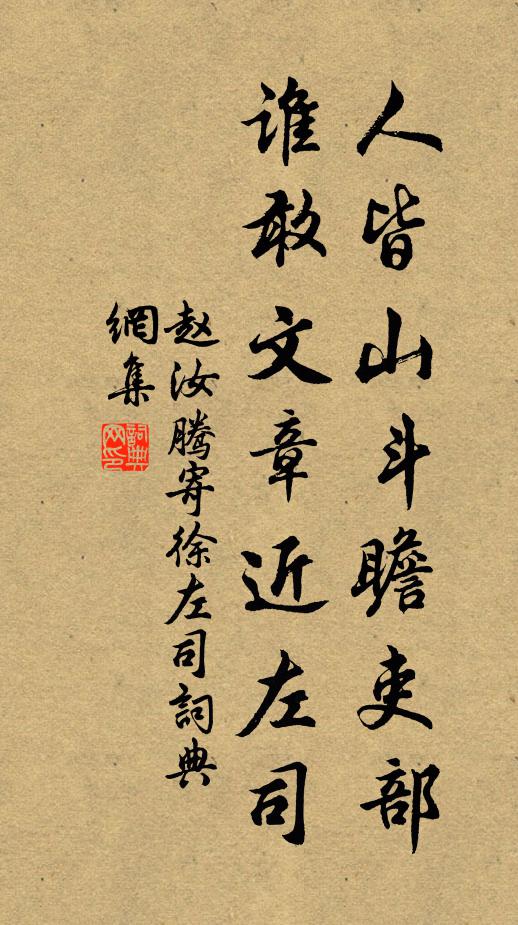 人皆山斗瞻吏部
谁敢文章近左司
赵汝腾寄徐左司詞典
網集
詞典网印